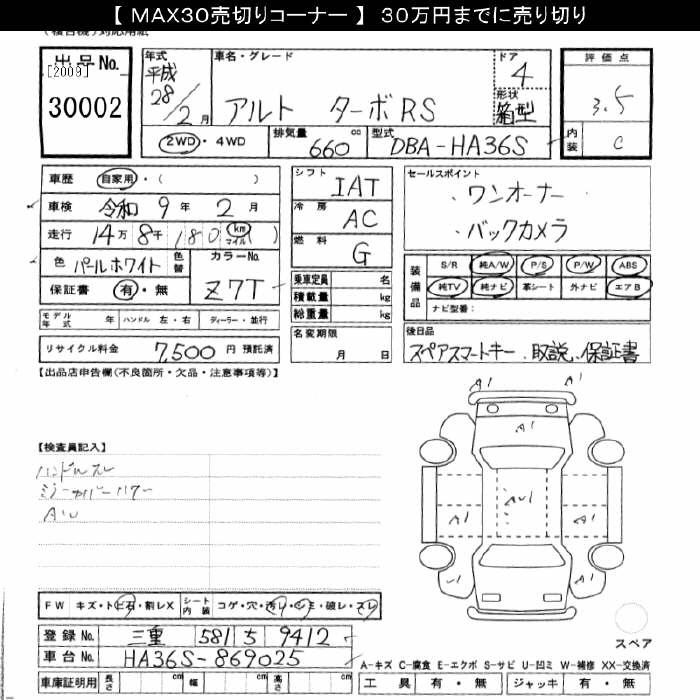 【 MAX30売切りコーナー 】 30万円までに売り切り
出品No. 30002
[2009]
年式 平成 28/2月
車名・グレード アルト ターボRS
ドア 4
形状 箱型
評価点 3.5
内装 C
2WD・4WD
排気量 660 cc
型式 DBA-HA36S
車歴 自家用・( )
車検 令和 9年 2月
走行 14万 8千 180 km マイル ( )
色 パールホワイト 色替 カラーNo. Z7T
保証書 有・無
シフト IAT
冷房 AC
燃料 G
乗車定員 名
積載量 kg
総重量 kg
セールスポイント
・ワンオーナー
・バックカメラ
装備品 S/R 純A/W P/S P/W ABS
純TV 純ナビ 革シート 外ナビ エアB
ナビ型番:
モデル年式 年 ハンドル 左・右 ディーラー・並行
名変期限 月 日
リサイクル料金 7,500 円 預託済
後日品
スペアスマートキー、取説、保証書
【出品店申告欄(不良箇所・欠品・注意事項等)】
A1 A1
A1
【検査員記入】
ハンドルスレ
ミラーカバー
AU
A1 A1
A1
FW キズ・トビ石・割レX シート内装 コゲ・穴・汚レ・シミ・破レ・スレ
登録No. 三重 581 5 9412
車台No. HA36S-869025
スペア
A-キズ C-腐食 E-エクボ S-サビ U-凹ミ W-補修 XX-交換済
車庫証明用 長さ cm 幅 cm 高さ cm
工具 有・無 ジャッキ 有・無